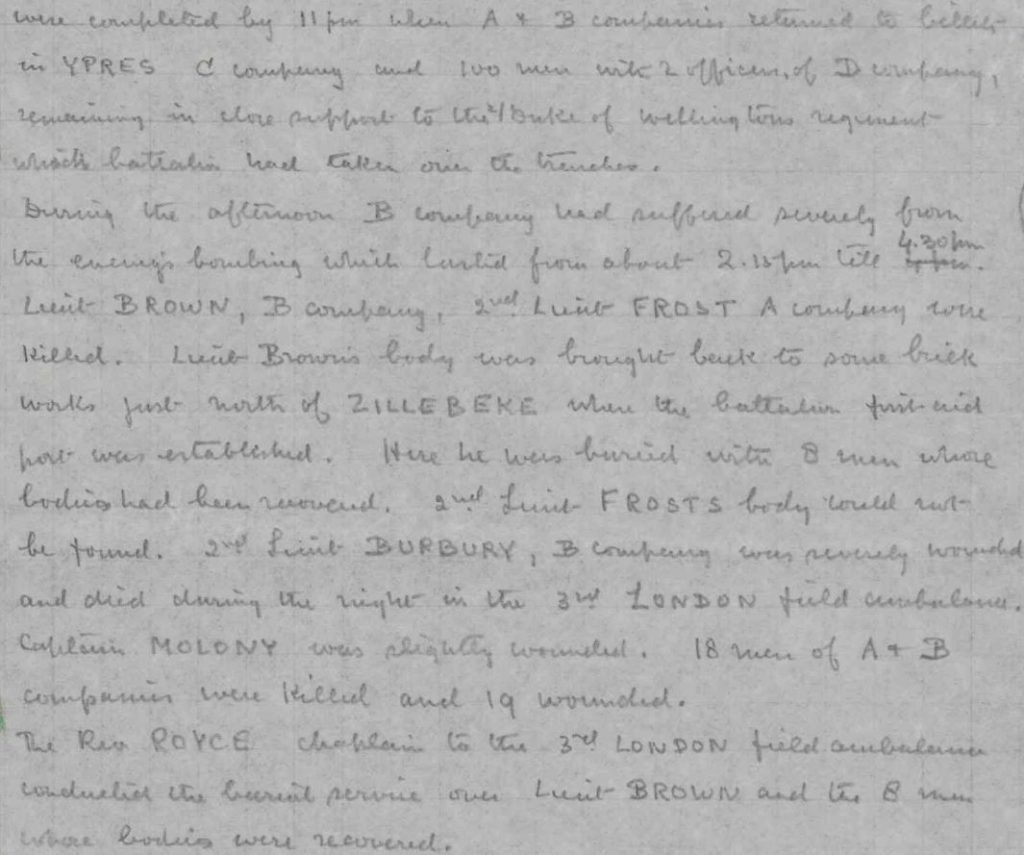 were completed by 11 pm when A & B companies returned to billets
in YPRES C company and 100 men with 2 officers, of D company,
remaining in close support to the Duke of Wellingtons regiment
which battalion had taken over the trenches.
During the afternoon B company had suffered severely from
the enemy's bombing which lasted from about 2.15 pm till 4.30 pm.
Lieut BROWN, B company, 2nd Lieut FROST A company were
killed. Lieut Brown's body was brought back to some brick
works just north of ZILLEBEKE where the battalion first-aid
post was established. Here he was buried with 8 men whose
bodies had been recovered. 2nd Lieut FROSTS body could not
be found. 2nd Lieut BURBURY, B company was severely wounded
and died during the night in the 3rd LONDON field ambulance.
Captain MOLONY was slightly wounded. 18 men of A & B
companies were killed and 19 wounded.
The Rev ROYCE chaplain to the 3rd LONDON field ambulance
conducted the burial service over Lieut BROWN and the 8 men
whose bodies were recovered.